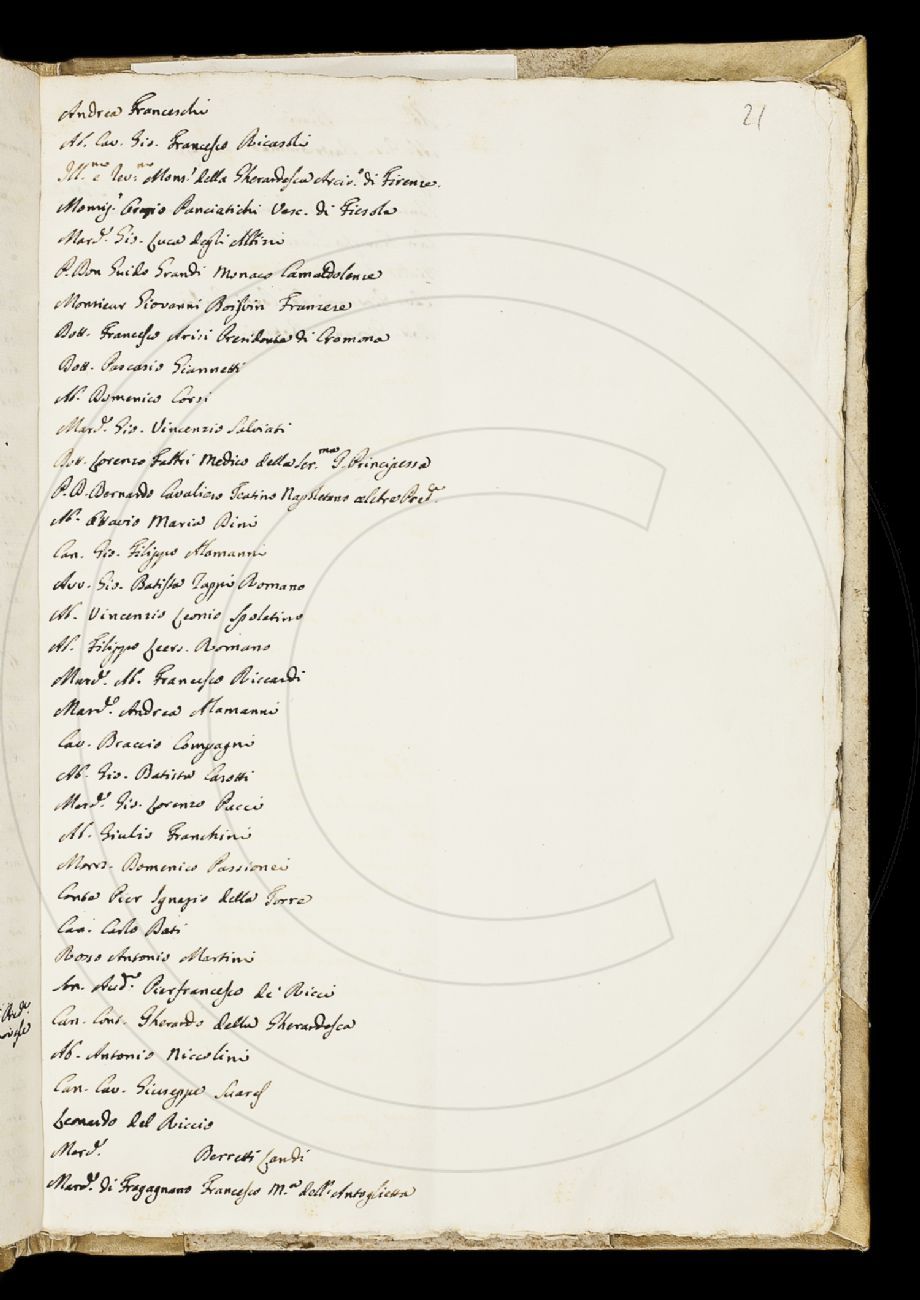 21
Andrea Franceschi
Ab. Cav. Gio. Francesco Ricasoli
Ill.mo e Rev.mo Mons.r della Gherardesca Arciv.o di Firenze.
Monsig.r Orazio Panciatichi Vesc. di Fiesole
March.e Gio. Luca degli Albizi
P. Don Guido Grandi Monaco Camaldolense
Monsieur Giovanni Boisvin Francese
Dott. Francesco Arisi Presidente di Cremona
Dott. Pascasio Giannetti
Ab. Domenico Corsi
March.e Gio. Vincenzio Salviati
Dott. Lorenzo Gattri Medico della Ser.ma G. Principessa
P. D. Bernardo Cavaliere Teatino Napoletano celebre Pred.e
Ab. Ottavio Maria Dini
Can. Gio. Filippo Alamanni
Avv. Gio. Batista Zappi Romano
Ab. Vincenzio Leonio Spoletino
Ab. Filippo Leers. Romano
March.e Ab. Francesco Riccardi
March.e Andrea Alamanni
Cav. Braccio Compagni
Ab. Gio. Batista Casotti
March.e Gio. Lorenzo Pucci
Ab. Giulio Franchini
Mons. Domenico Passionei
Conte Pier Ignazio della Torre
Cav. Carlo Dati
Rosso Antonio Martini
Pierfrancesco de' Ricci
Can. Cont. Gherardo della Gherardesca
Ab. Antonio Niccolini
Can. Cav. Giuseppe Suares
Leonardo del Riccio
March.e Berretti Landi
March.e di Fragagnano Francesco M.a dell'Antoglietta